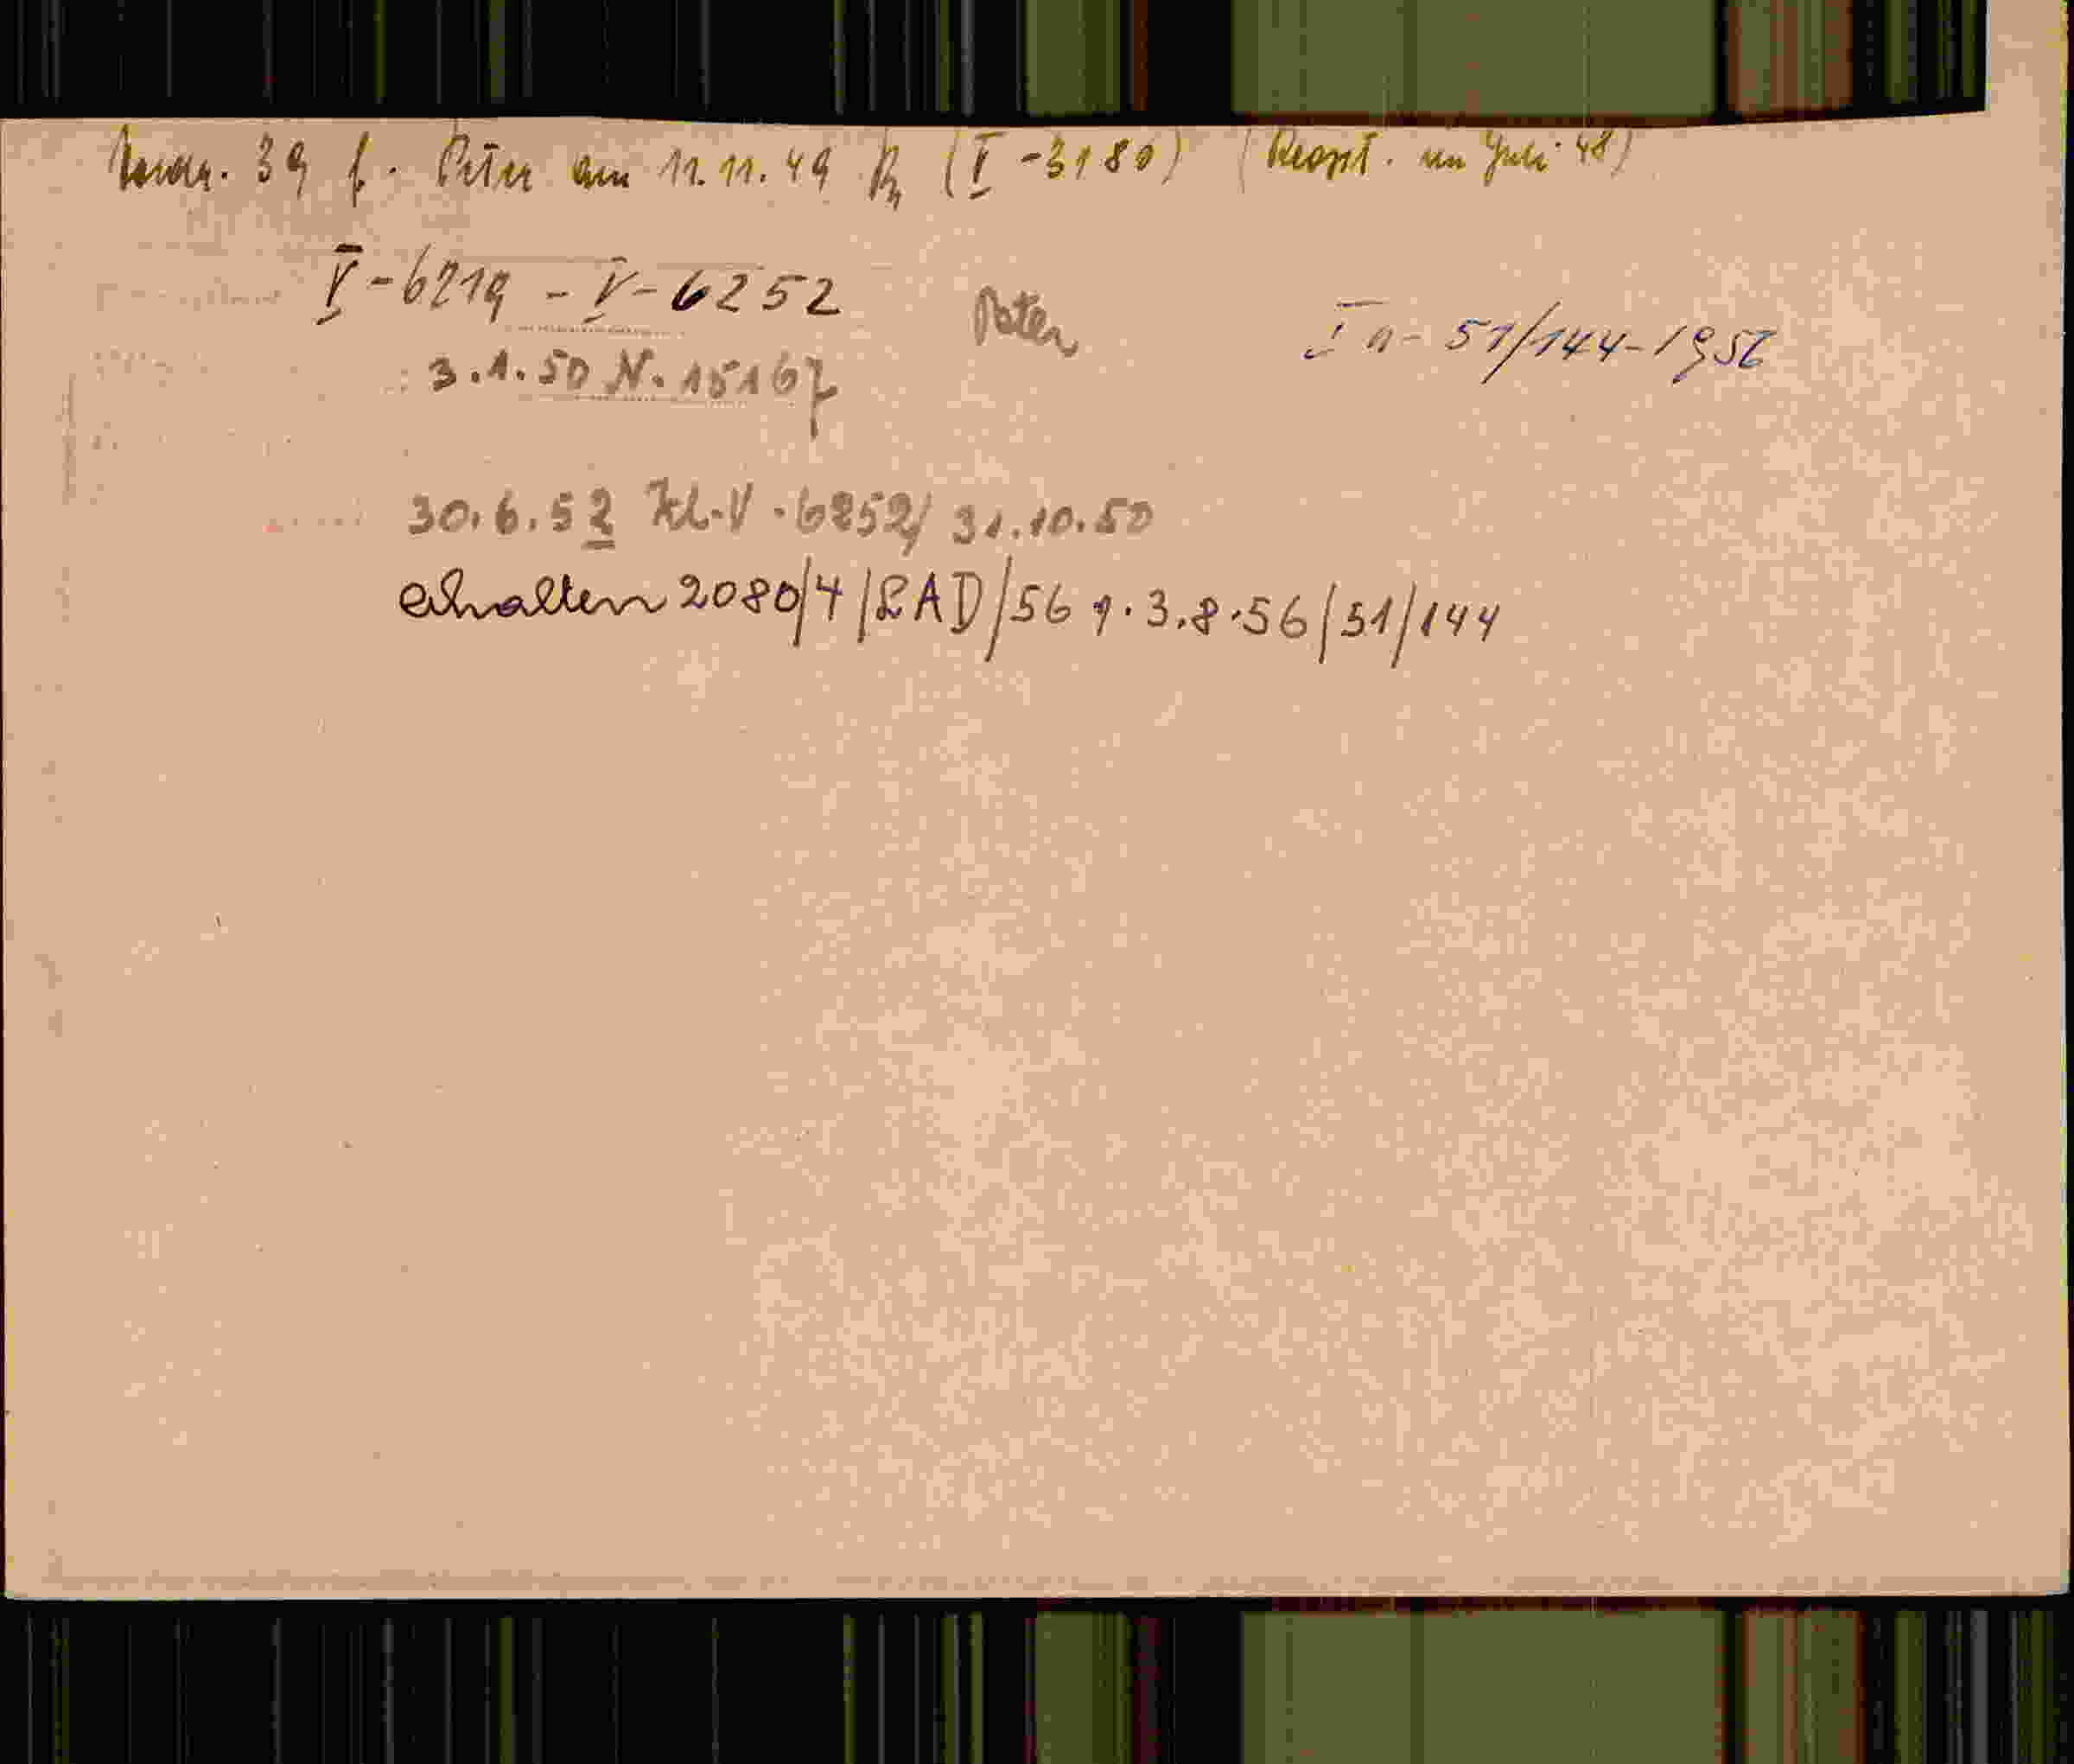 39 f. Peter am 11.11.49 (V-3180) (Reopt. im Juli 48)
V-6219 - V-6252
I a - 51/144-1956
3.1.50 N. 15167
30.6.52 Kl. V. 6252/ 31.10.50
erhalten 2080/4/RAD/56 v. 3.8.56/51/144